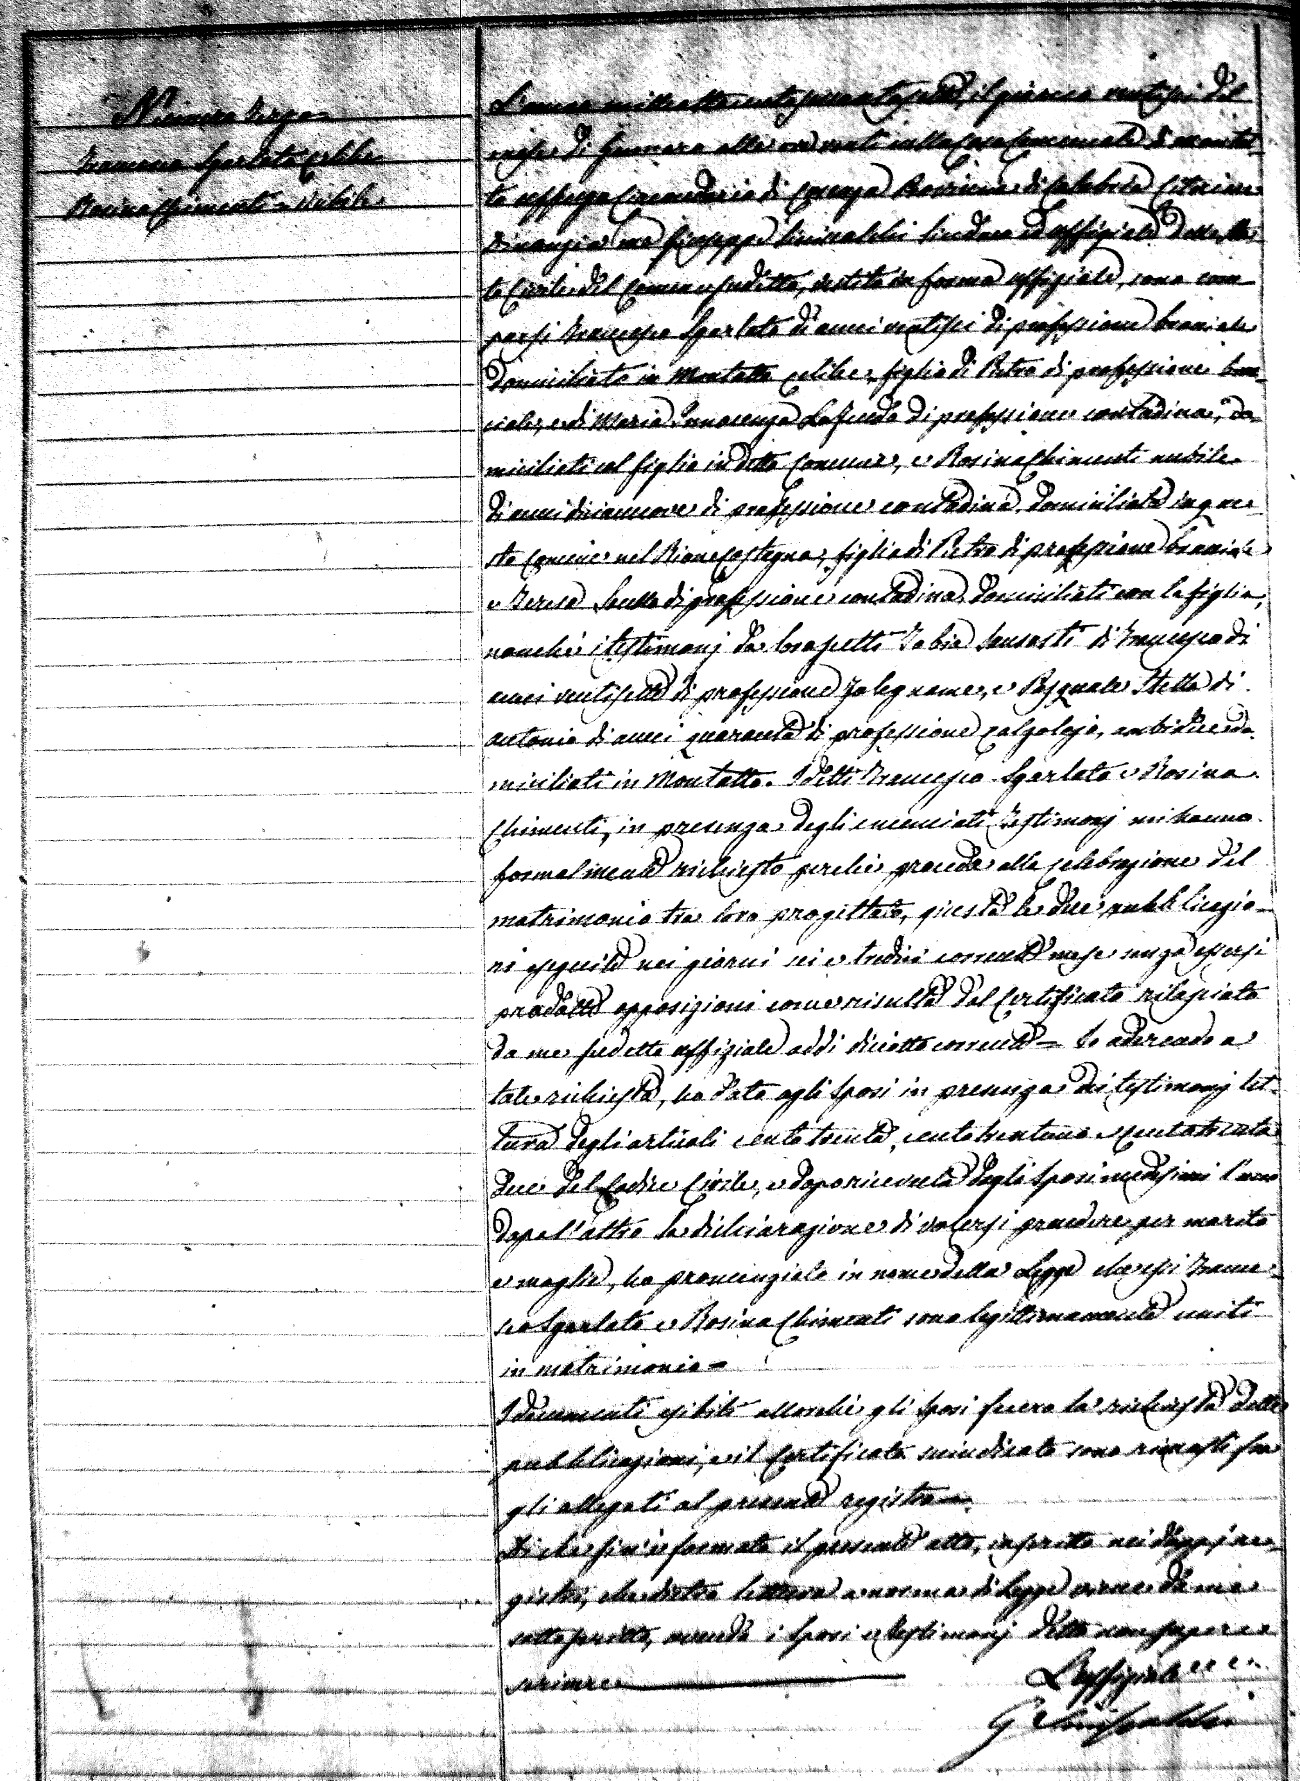 Numero Terzo
Francesco Sparlato Celibe
Rosina Chimenti = Nubile
L'anno milleottocentosessantasette, il giorno ventisei del
mese di Gennaro alle ore venti nella Casa Comunale di Montal-
to uffugo Circondario di Cosenza Provincia di Calabria Citeriore
Dinanzi a me Giuseppe Sindaco ed uffiziale dello Sta-
to Civile del Comune sudetto, vestito in forma uffiziale, sono com-
parsi Francesco Sparlato di anni ventisei di professione bracciale
domiciliato in Montalto celibe, figlio di Pietro di professione brac-
ciale, e di Maria Innocenza di professione contadina, do-
miciliati col figlio in detto Comune, e Rosina Chimenti nubile
di anni diciannove di professione contadina, domiciliata in que-
sto Comune nel Rione Castagna, figlia di Pietro di professione bracciale
e Teresa di professione contadina, domiciliati con la figlia,
nonché i testimonj da Fabio di Francesco di
anni ventisette di professione falegname, e Pasquale Stella di
Antonio di anni quaranta di professione calzolajo, ambidue do-
miciliati in Montalto. I detti Francesco Sparlato e Rosina
Chimenti, in presenza degli enunciati testimonj mi hanno
formalmente richiesto perché proceda alla celebrazione del
matrimonio tra loro progettato, giusta le due pubblicazio-
ni eseguite nei giorni sei e tredici corrente mese senza essersi
prodotte opposizioni come risulta dal Certificato rilasciato
da me sudetto uffiziale addi diciotto corrente = Io aderendo a
tale richiesta, ho dato agli sposi in presenza dei testimonj let-
tura degli articoli centotrenta, centotrentuno e centotrenta
due del Codice Civile, e dopo ricevuta dagli sposi medesimi l'uno
dopo l'altro la dichiarazione di volersi prendere per marito
e moglie, ho pronunziato in nome della Legge che essi France-
sco Sparlato e Rosina Chimenti sono legittimamente uniti
in matrimonio =
I documenti esibiti allorché gli sposi fecero la richiesta delle
pubblicazioni, e il Certificato suindicato sono rimasti fra
gli allegati al presente registro =
Di che si è formato il presente atto, inscritto nei doppj re-
gistri, che dietro lettura a norma di Legge viene da me
sottoscritto, avendo i sposi e testimonj detto non sapere
scrivere
L'uffiziale